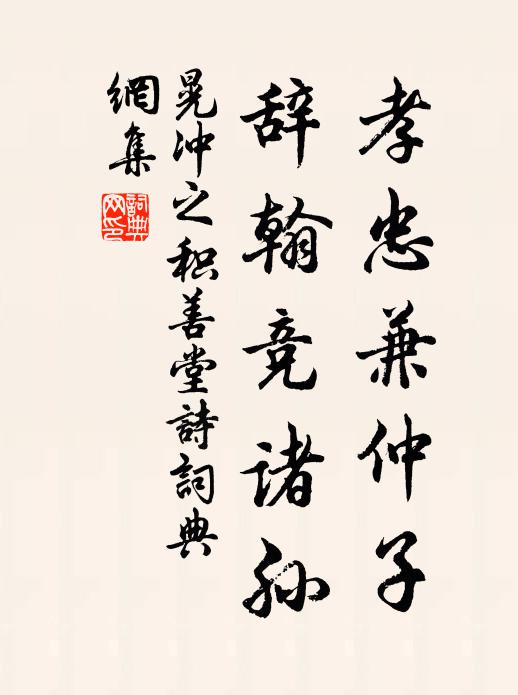 孝忠兼仲子
辞翰竞诸孙
晁冲之积善堂詩詞典
網集
詞典
网印